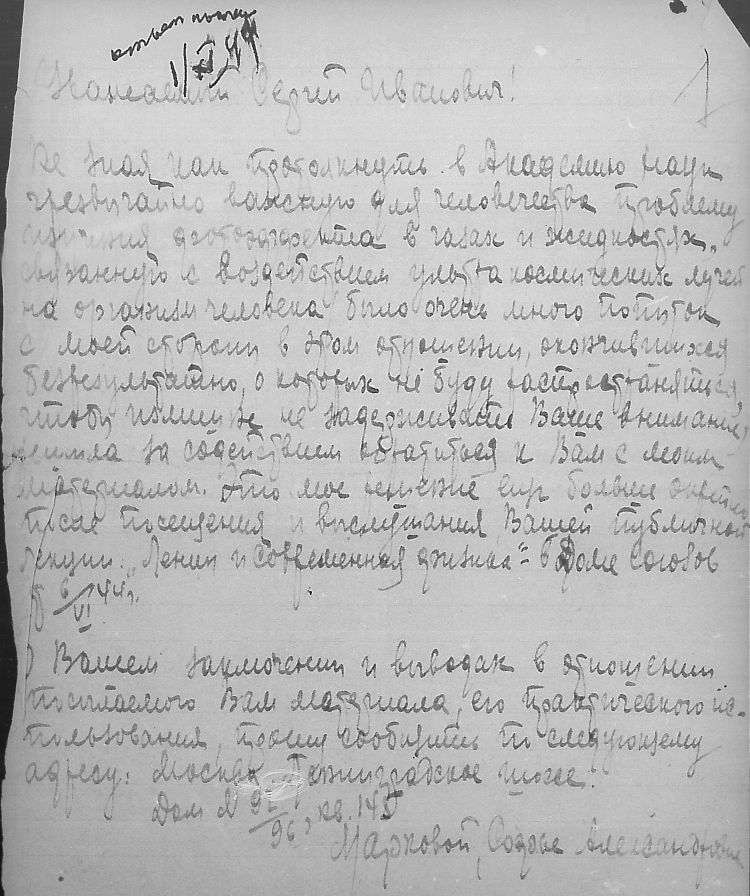 1/XI 44
1
Уважаемый Сергей Иванович!
Не зная как протолкнуть в Академию Наук
чрезвычайно важную для человечества проблему
изучения фотоэффекта в газах и жидкостях,
связанную с воздействием ультракосмических лучей
на организм человека было очень много попыток
с моей стороны в этом отношении, окончившихся
безрезультатно, о которых не буду распространяться,
чтобы не задерживать Ваше внимание,
решила за содействием обратиться к Вам с моим
материалом. Это мое решение еще больше окрепло
после посещения и выслушания Вашей публичной
лекции: „Ленин и современная физика" в Доме союзов
6/VI 44 г.
О Вашем заключении и выводах в отношении
посылаемого Вам материала, его практического ис-
пользования, прошу сообщить по следующему
адресу: Москва, Ленинградское шоссе.
Дом № 92/96, кв. 145
Марковой, Софье Александровне